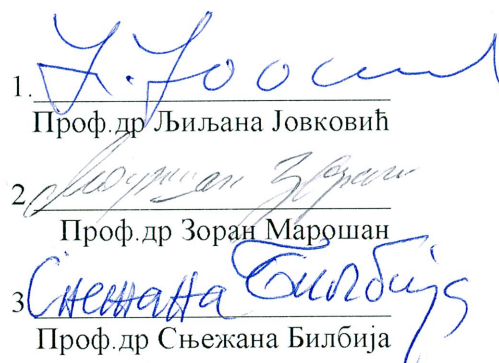 1.
Проф.др Љиљана Јовковић
2
Проф.др Зоран Марошан
3 Снежана Билбија
Проф.др Сњежана Билбија